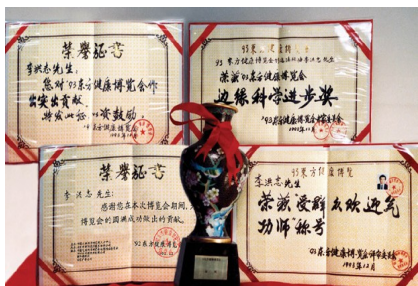 荣誉证书
李洪志先生:
您对'93东方健康博览会作
出突出贡献.
特发此证 以资鼓励
'93东方健康博览会
93东方健康博览会
荣获'93东方健康博览会
边缘科学进步奖
'93东方健康博览会
1993年12月
荣誉证书
李洪志先生:
感谢您在本次博览会期间,
博览会的圆满成功做出的贡献.
93东方健康博览会
李洪志先生
荣获受群众欢迎气
功师"称号
'93东方健康博览会
1993年12月